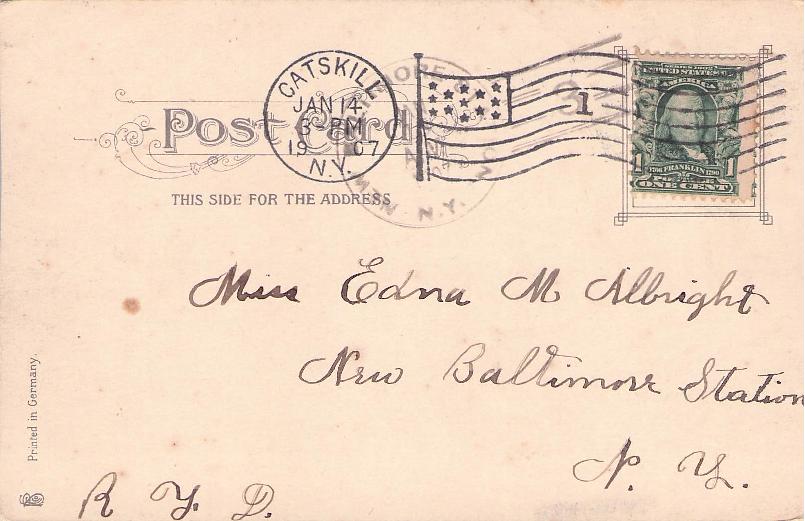 CATSKILL
JAN 14
3-PM
19 07
N.Y.
1
SERIES 1902
UNITED STATES OF
AMERICA
1 1
1706 FRANKLIN 1790
ONE CENT
Post Card
THIS SIDE FOR THE ADDRESS
N.Y.
Miss Edna M Albright
New Baltimore Station
N. Y.
R. Y. D.
Printed in Germany.